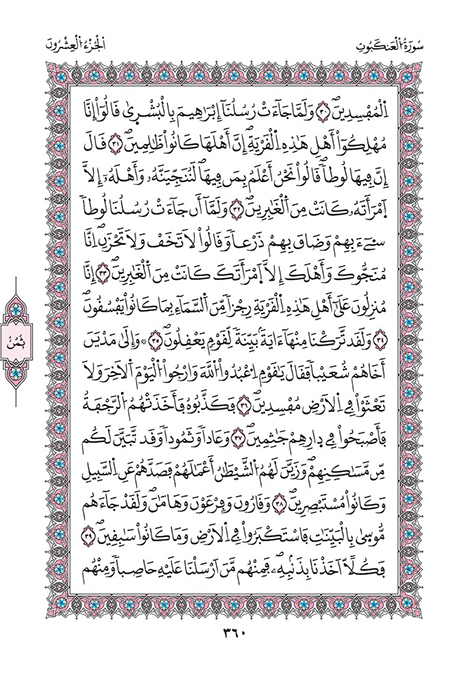 سُورَةُ الْعَنكَبُوتِ
الْجُزْءُ الْعِشْرُونَ
اَ۬لْمُفْسِدِينَۖ ٣٠ وَلَمَّا جَآءَتْ رُسُلُنَآ إِبْرَٰهِيمَ بِالْبُشْر۪ىٰ قَالُوٓاْ إِنَّا
مُهْلِكُوٓاْ أَهْلِ هَٰذِهِ اِ۬لْقَرْيَةِۖ إِنَّ أَهْلَهَا كَانُواْ ظَٰلِمِينَۖ ٣١ قَالَ
إِنَّ فِيهَا لُوطاٗۖ قَالُواْ نَحْنُ أَعْلَمُ بِمَن فِيهَاۖ لَنُنَجِّيَنَّهُۥ وَأَهْلَهُۥٓ إِلَّا
اَ۪مْرَأَتَهُۥ كَانَتْ مِنَ اَ۬لْغَٰبِرِينَۖ ٣٢ وَلَمَّآ أَن جَآءَتْ رُسُلُنَا لُوطاٗ
سِےٓءَ بِهِمْ وَضَاقَ بِهِمْ ذَرْعاٗ وَقَالُواْ لَا تَخَفْ وَلَا تَحْزَنِۖ اِنَّا
مُنَجُّوكَ وَأَهْلَكَ إِلَّا اَ۪مْرَأَتَكَ كَانَتْ مِنَ اَ۬لْغَٰبِرِينَۖ ٣٣ إِنَّا
مُنزِلُونَ عَلَىٰٓ أَهْلِ هَٰذِهِ اِ۬لْقَرْيَةِ رِجْزاٗ مِّنَ اَ۬لسَّمَآءِ بِمَا كَانُواْ يَفْسُقُونَۖ
٣٤ وَلَقَد تَّرَكْنَا مِنْهَآ ءَايَةَۢ بَيِّنَةٗ لِّقَوْمٖ يَعْقِلُونَۖ ٣٥ وَإِلَىٰ مَدْيَنَ
أَخَاهُمْ شُعَيْباٗ فَقَالَ يَٰقَوْمِ اِ۟عْبُدُواْ اُ۬للَّهَ وَارْجُواْ اُ۬لْيَوْمَ اَ۬لَاخِرَ وَلَا
تَعْثَوْاْ فِے اِ۬لَارْضِ مُفْسِدِينَۖ ٣٦ فَكَذَّبُوهُ فَأَخَذَتْهُمُ اُ۬لرَّجْفَةُ
فَأَصْبَحُواْ فِے دِارِهِمْ جَٰثِمِينَۖ ٣٧ وَعَاداٗ وَثَمُوداٗ وَقَد تَّبَيَّنَ لَكُم
مِّن مَّسَٰكِنِهِمْۖ وَزَيَّنَ لَهُمُ اُ۬لشَّيْطَٰنُ أَعْمَٰلَهُمْ فَصَدَّهُمْ عَنِ اِ۬لسَّبِيلِ
وَكَانُواْ مُسْتَبْصِرِينَۖ ٣٨ وَقَٰرُونَ وَفِرْعَوْنَ وَهَٰمَٰنَۖ وَلَقَدْ جَآءَهُم
مُّوس۪ىٰ بِالْبَيِّنَٰتِ فَاسْتَكْبَرُواْ فِے اِ۬لَارْضِ وَمَا كَانُواْ سَٰبِقِينَۖ ٣٩
فَكُلّاً اَخَذْنَا بِذَنۢبِهِۦۖ فَمِنْهُم مَّنَ اَرْسَلْنَا عَلَيْهِ حَاصِباٗۖ وَمِنْهُم
ثُمُنُ
٣٦٠